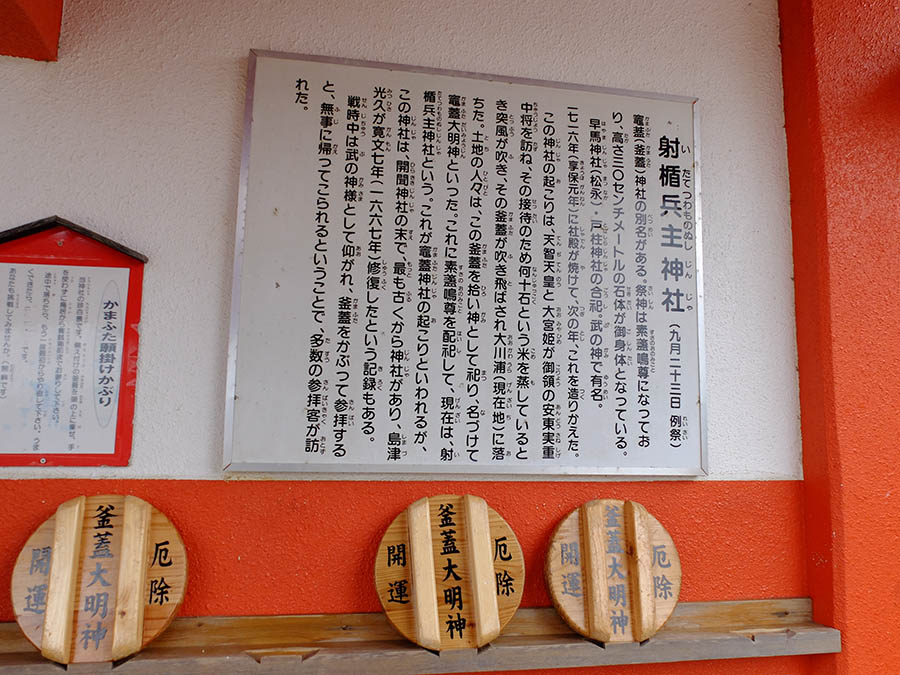 射楯兵主神社（九月二十三日 例祭）
竈蓋（釜蓋）神社の別名がある。祭神は素盞鳴尊になってお
り、高さ三〇センチメートルの石体が御身体となっている。
早馬神社（松永）・戸柱神社の合祀。武の神で有名。
一七一六年（享保元年）に社殿が焼けて、次の年、これを造りかえた。
この神社の起こりは、天智天皇と大宮姫が御領の安東実重
中将を訪ね、その接待のため何十石という米を蒸していると
き突風が吹き、その釜蓋が吹き飛ばされ大川浦（現在地）に落
ちた。土地の人々は、この釜蓋を拾い神として祀り、名づけて
竈蓋大明神といった。これに素盞鳴尊を配祀して、現在は、射
楯兵主神社という。これが竈蓋神社の起こりといわれるが、
この神社は、開聞神社の末で、最も古くから神社があり、島津
光久が寛文七年（一六六七年）修復したという記録もある。
戦時中は武の神様として仰がれ、釜蓋をかぶって参拝する
と、無事に帰ってこられるということで、多数の参拝客が訪
れた。
かまふた願掛けかぶり
あなたも挑戦してみませんか。（無料です）
厄除
釜蓋大明神
開運
厄除
釜蓋大明神
開運
厄除
釜蓋大明神
開運